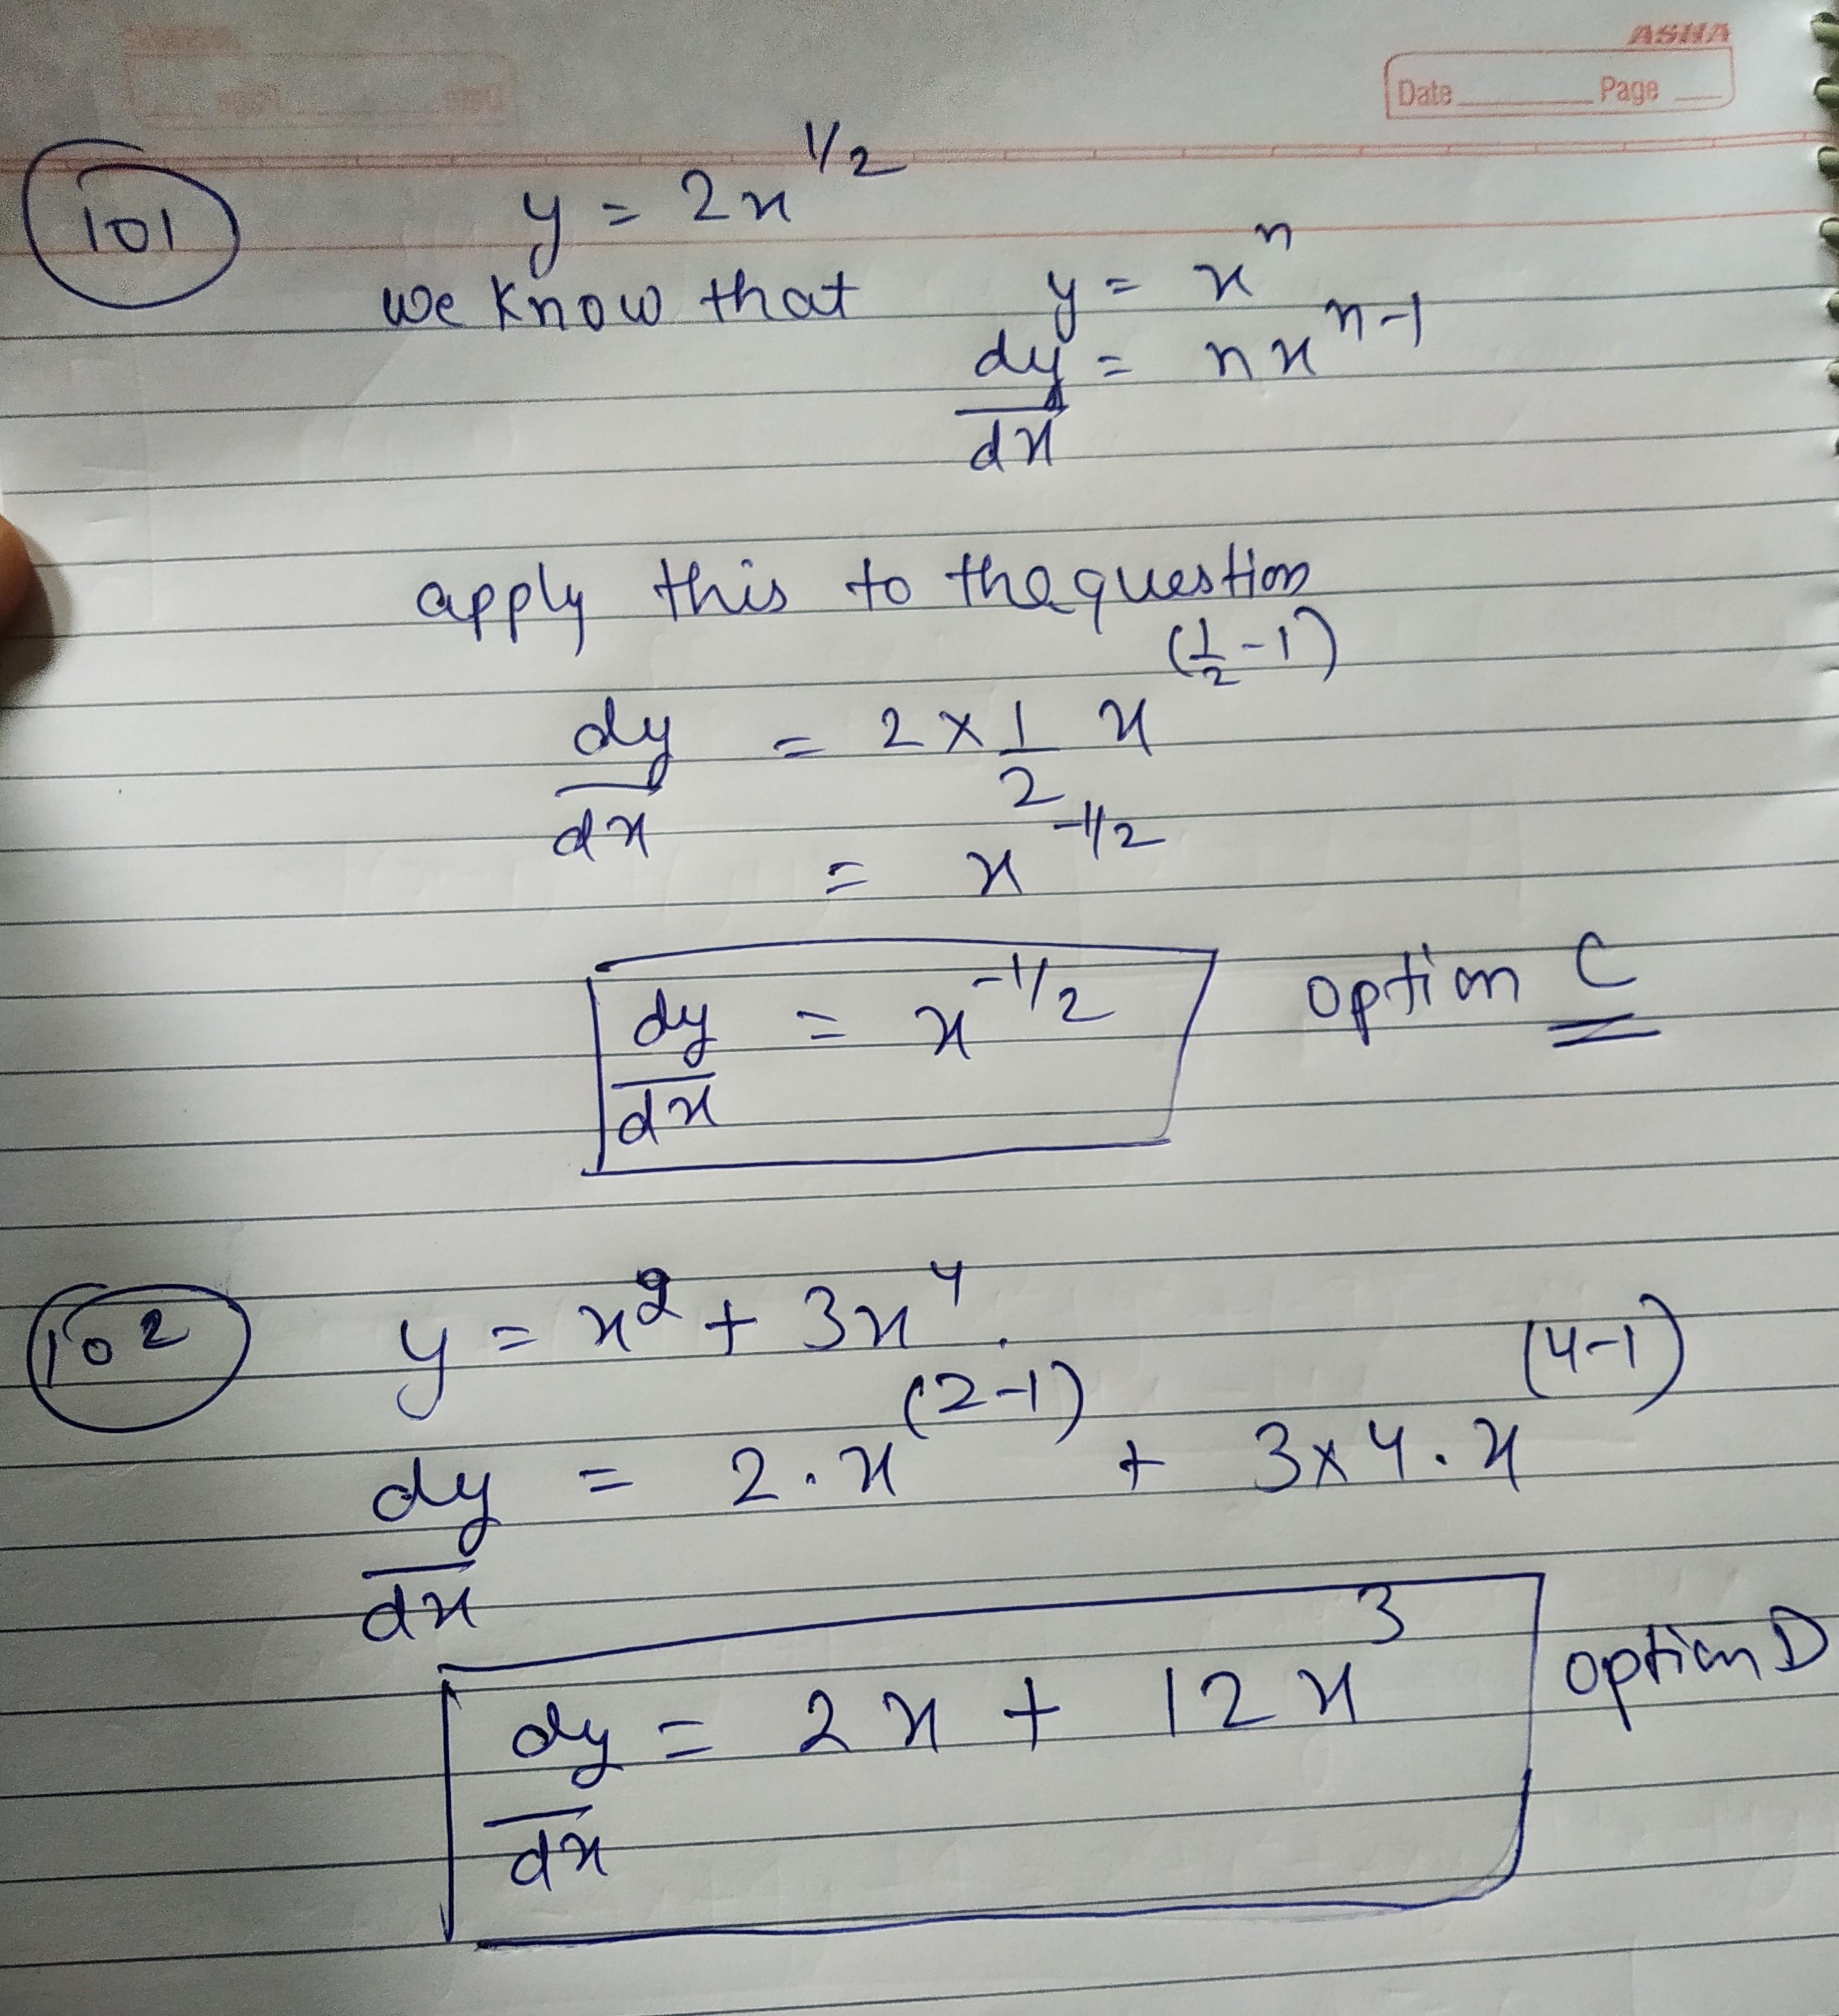 ASHA
Date Page
101 y = 2x^1/2
we know that y = x^n
dy/dx = nx^n-1
apply this to the question
dy/dx = 2 × 1/2 x^(1/2-1)
= x^-1/2
dy/dx = x^-1/2 option C
102 y = x^2 + 3x^4.
dy/dx = 2.x^(2-1) + 3×4.x^(4-1)
dy/dx = 2x + 12x^3 option D